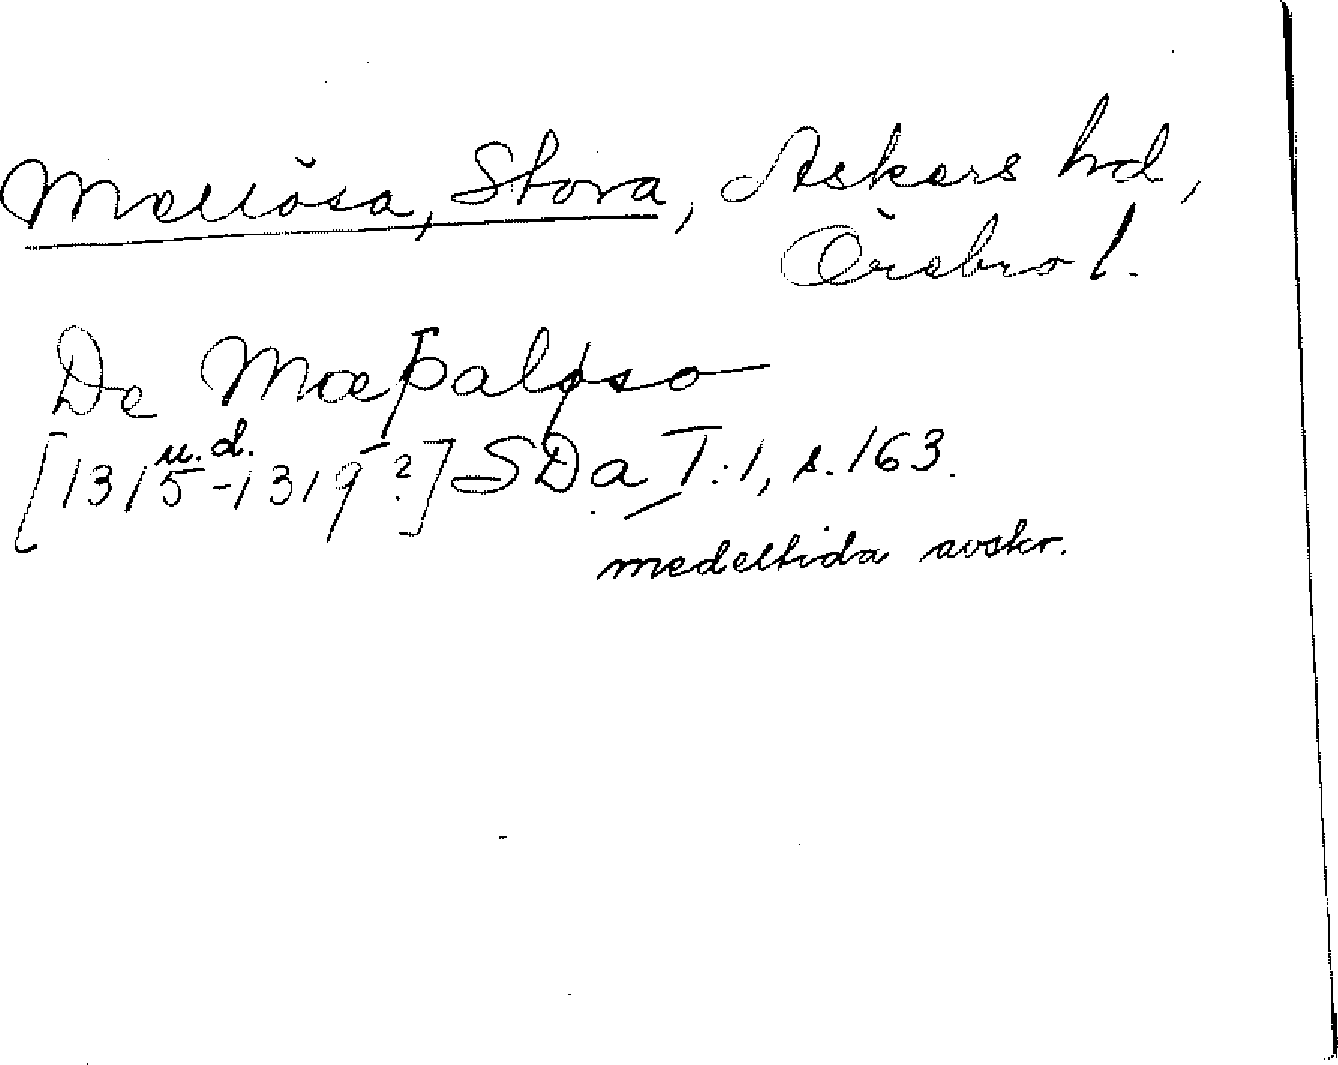 Mellösa, Stora, Askers hd,
Örebro l.
De Mæþaløso
u.d.
[1315-1319?] SDa T:1, s. 163.
medeltida avskr.